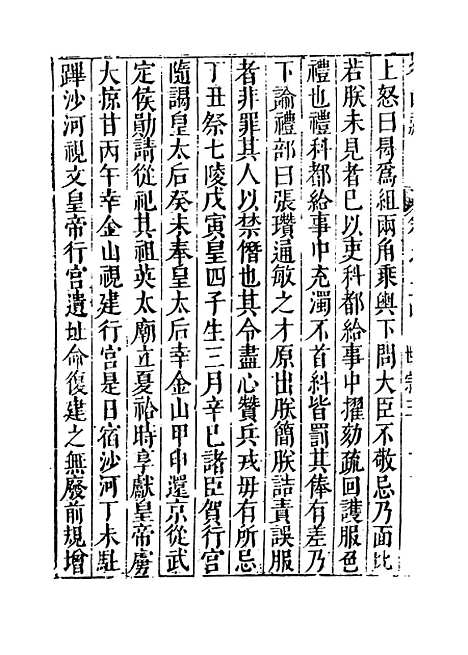 上怒曰曷爲組兩角乘輿下問大臣不敬忌乃面比
若朕未見者巳以吏科都給事中擢劾疏回護服色
禮也禮科都給事中充濁不首糾皆罰其俸有差乃
下諭禮部曰張瓚通敏之才原出朕簡朕詰責誤服
者非罪其人以禁僭也其令盡心贊兵戎毋有所忌
丁丑祭七陵戊寅皇四子生三月辛巳諸臣賀行宮
隨謁皇太后癸未奉皇太后幸金山甲申還京從武
定侯勛請從祀其祖英太廟立夏祫時享獻皇帝虜
大掠甘丙午幸金山視建行宮是日宿沙河丁未駐
蹕沙河視文皇帝行宮遺址命復建之無廢前規增
世宗三